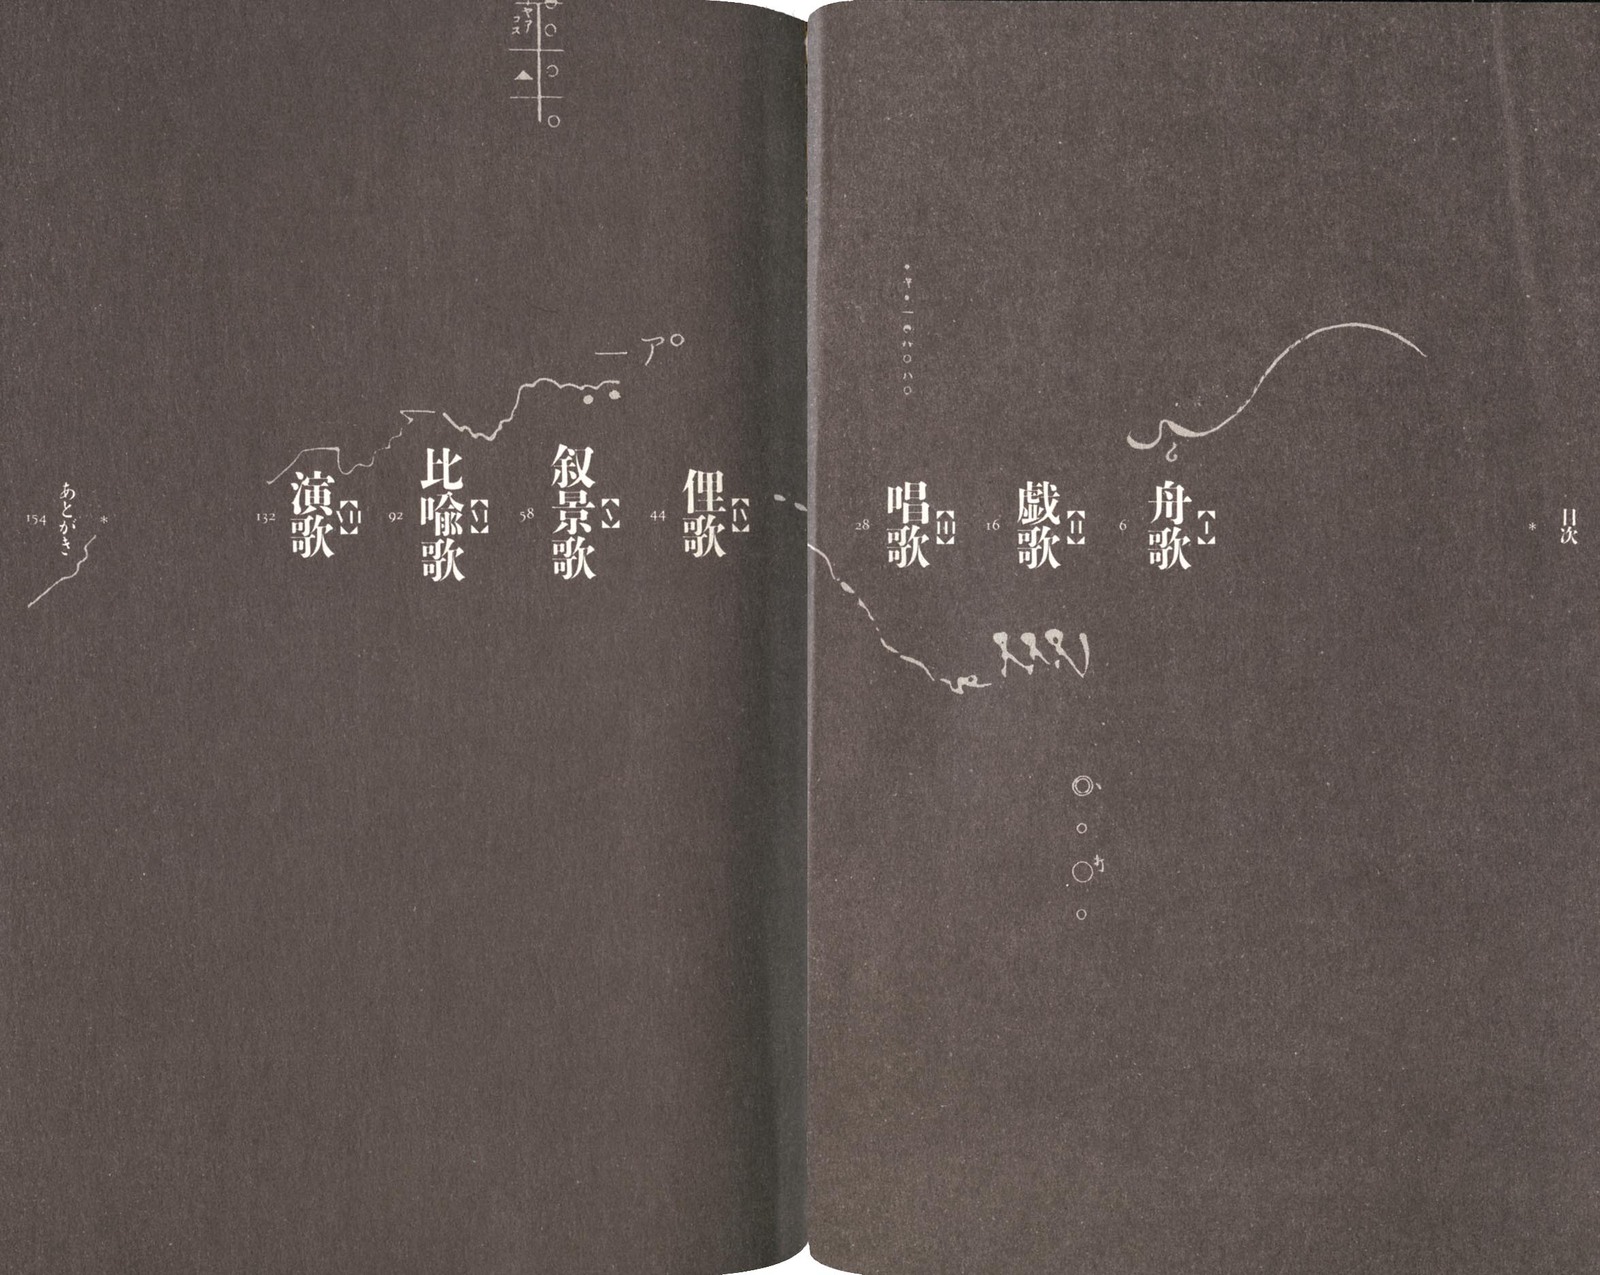 目次
*
【I】
舟歌
6
【II】
戯歌
16
【III】
唱歌
28
【IV】
俚歌
44
【V】
叙景歌
58
【VI】
比喩歌
92
【VII】
演歌
132
*
あとがき
154